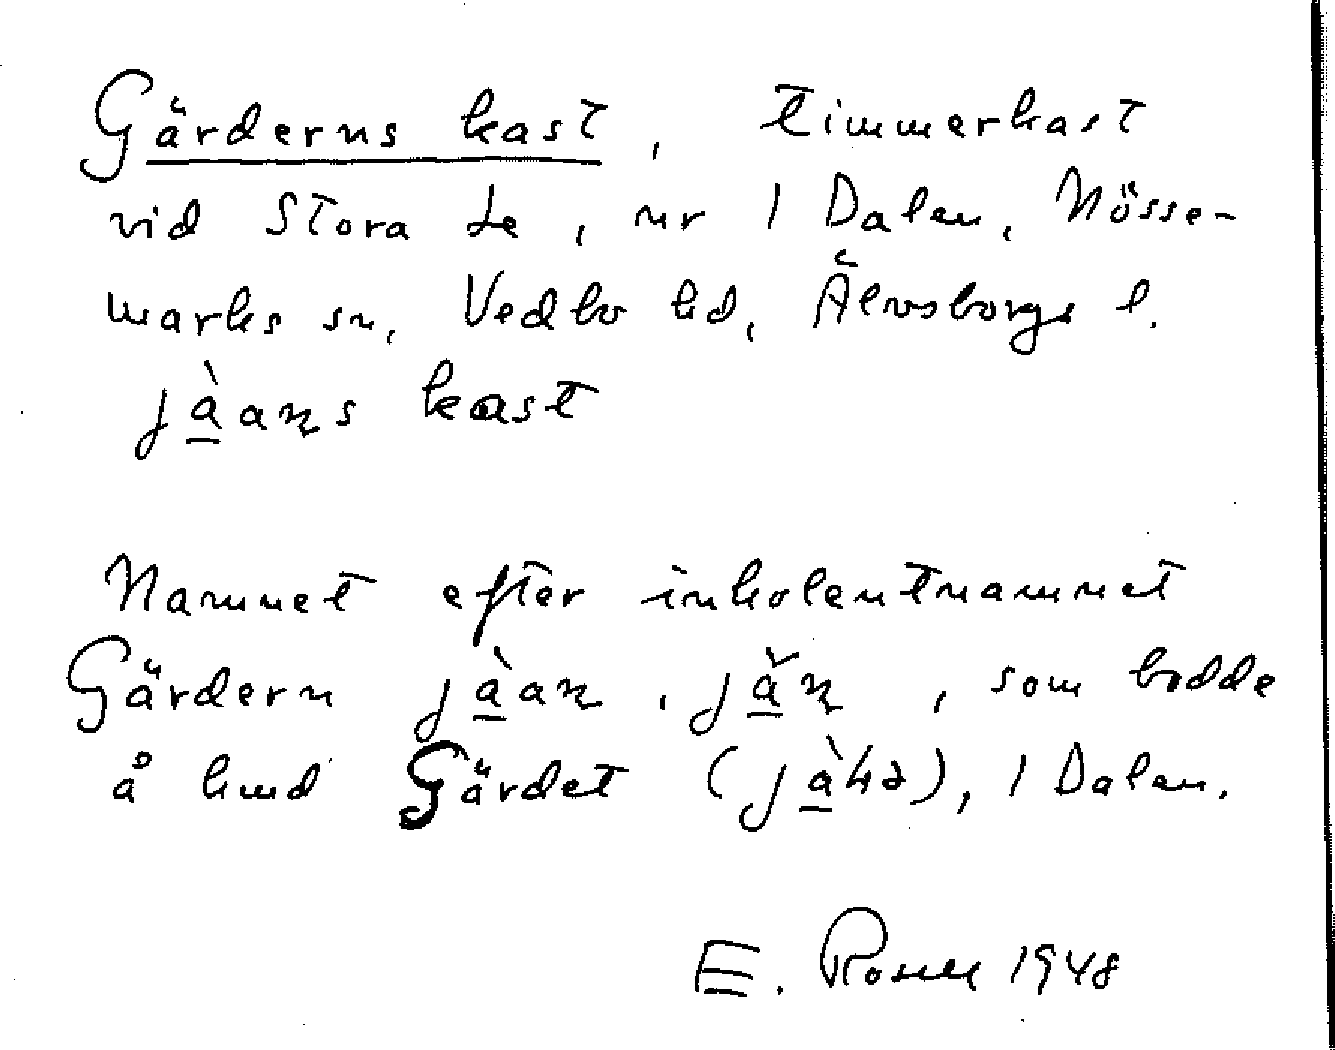 Gärderns kast, timmerkast
vid Stora Le, nr 1 Dalen, Nösse-
marks sn, Vedbo hd, Älvsborgs l.
jà̱aꞥs kast
Namnet efter inkolentnamnet
Gärdern jà̱aꞥ, jà̱̌ꞥ, som bodde
å hmd Gärdet (jà̱ɦə), 1 Dalen.
E. Rosell 1948